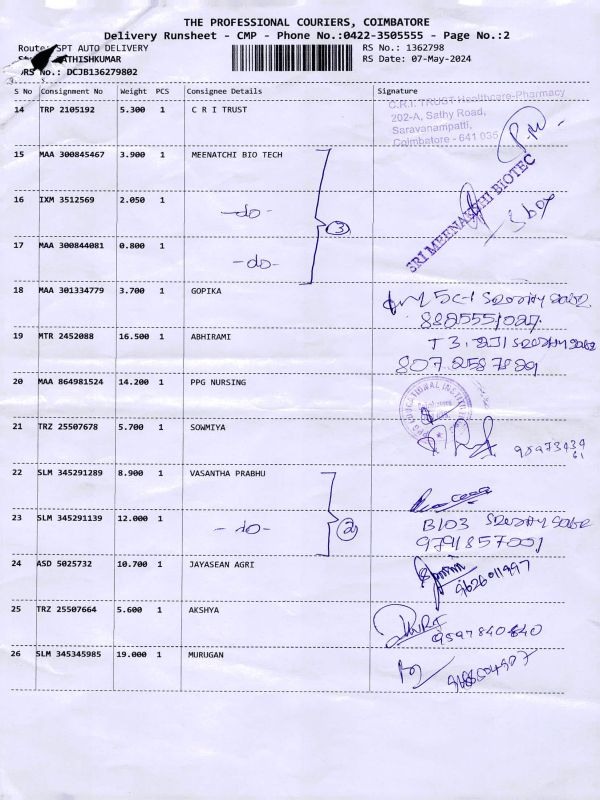 THE PROFESSIONAL COURIERS, COIMBATORE
Delivery Runsheet - CMP - Phone No.:0422-3505555 - Page No.:2
Route: SPT AUTO DELIVERY
RS No.: 1362798
ATHISHKUMAR
RS Date: 07-May-2024
DRS No.: DCJB136279802
S No Consignment No Weight PCS Consignee Details Signature
14 TRP 2105192 5.300 1 C R I TRUST
C.R.I. TRUST Healthcare-Pharmacy
202-A, Sathy Road,
Saravanampatti,
Coimbatore - 641 035
15 MAA 300845467 3.900 1 MEENATCHI BIO TECH
16 IXM 3512569 2.050 1 -do-
3
SRI MEENATCHI BIOTEC
3 box
17 MAA 300844081 0.800 1 -do-
18 MAA 301334779 3.700 1 GOPIKA
5C-1
8885551027
19 MTR 2452088 16.500 1 ABHIRAMI
20 MAA 864981524 14.200 1 PPG NURSING
21 TRZ 25507678 5.700 1 SOWMIYA
22 SLM 345291289 8.900 1 VASANTHA PRABHU
23 SLM 345291139 12.000 1 -do-
2
B103
9791857001
24 ASD 5025732 10.700 1 JAYASEAN AGRI
9626011997
25 TRZ 25507664 5.600 1 AKSHYA
9597840840
26 SLM 345345985 19.000 1 MURUGAN